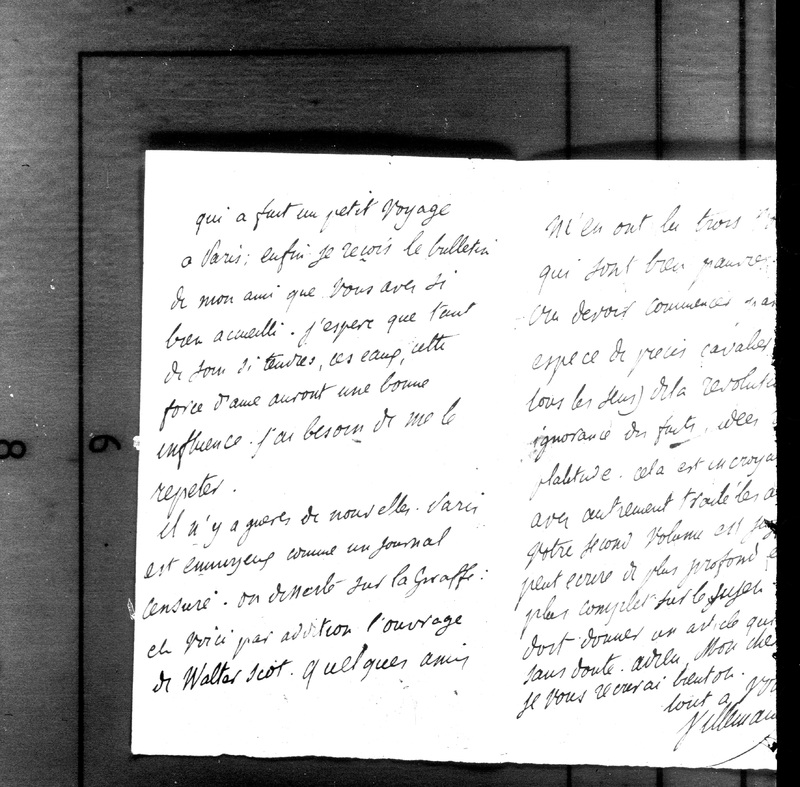 qui a fait un petit voyage
a Paris; enfin je reçois le bulletin
de mon ami que vous aves si
bien acueilli. j'espere que tant
de soins si tendres, ces eaux, cette
force d'ame auront une bonne
influence. j'ai besoin de me le
repeter.
il n'y a gueres de nouvelles. Paris
est ennuyeux comme un journal
censuré. on disserte sur la Giraffe:
et voici par addition l'ouvrage
de Walter Scot. quelques amis
M'en ont lu trois
qui sont bien pauvres
devoir commencer
espece de precis cavalier
tous les sens) de la revolution
ignorance des faits, idées
platitude. cela est incroya
aves autrement traité les
votre second volume est
peut ecrire de plus profond
plus complet sur le sujet.
doit donner un article qui
sans doute. adieu Mon che
je vous recrirai bientot.
tout a vo
Villemain
6
8